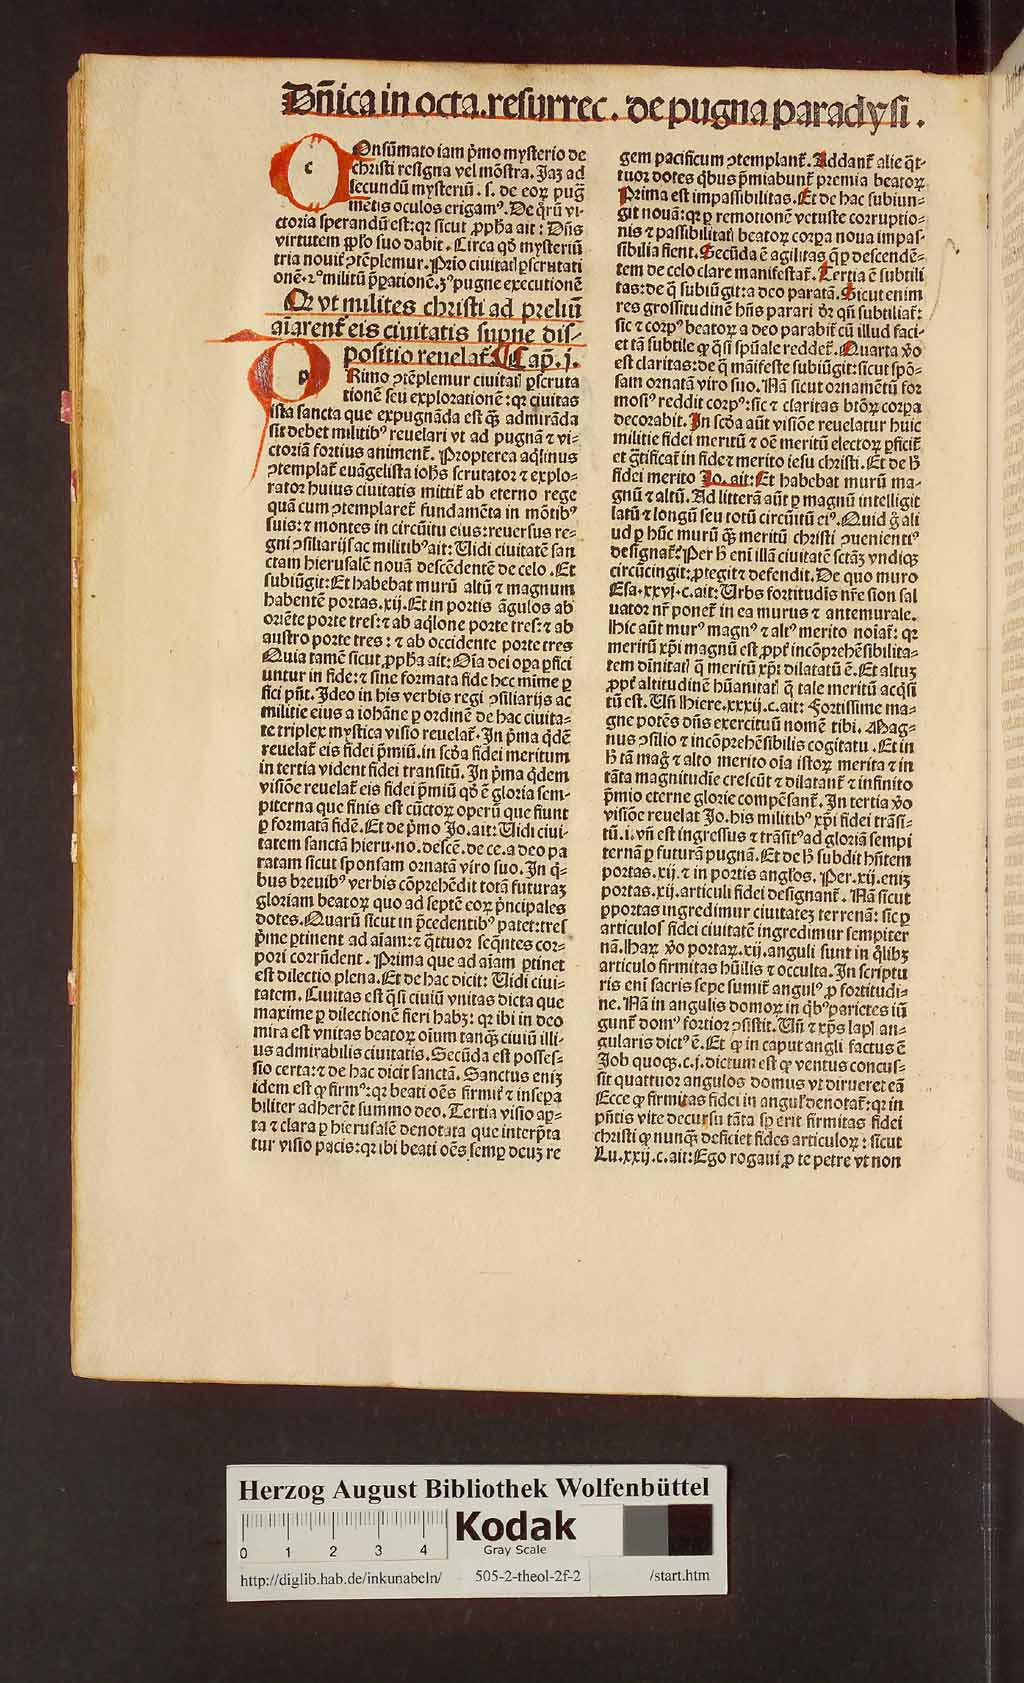 Dñica in octa.resurrec. de pugna paradysi.
COnsũmato iam p̃mo mysterio de
christi resigna vel mõstra. Jaʒ ad
secundũ mysteriũ . s. de eoꝝ pug̃
mẽtis oculos erigamꝰ. De q̃rũ vi-
ctoria sperandũ est: qꝛ sicut ꝓpħa ait : Dñs
virtutem ꝓplo suo dabit . Circa qð mysteriũ
tria nouit ꝯtẽplemur. Prīo ciuitatꝭ ꝑscrutati
onẽ. 2ꝰ militũ p̃pationẽ. 3ꝰ pugne executionẽ
Qꝛ vt milites christi ad preliũ
aĩarenť eis ciuitatis supne dis-
positio reuelať. Cap̃. j.
PRimo ꝯtẽplemur ciuitatꝭ ꝑscruta
tionẽ seu explorationẽ: qꝛ ciuitas
ista sancta que expugnãda est qꝫ admirãda
sit debet militibꝰ reuelari vt ad pugnã ⁊ vi-
ctoriã fortius animenť. Propterea aq̃linus
ꝯtemplať euãgelista iohẽs scrutator ⁊ explo-
rator huius ciuitatis mittiť ab eterno rege
quã cum ꝯtemplareť fundamẽta in mõtibꝰ
suis: ⁊ montes in circũitu eius: reuersus re-
gni ꝯsiliarijs ac militibꝰ ait: Uidi ciuitatẽ san
ctam hierusalẽ nouã descẽdentẽ de celo . Et
subiũgit: Et habebat murũ altũ ⁊ magnum
habentẽ portas .xij. Et in portis ãgulos ab
oriẽte porte tres: ⁊ ab aq̃lone porte tres: ⁊ ab
austro porte tres : ⁊ ab occidente porte tres
Quia tamẽ sicut ꝓpħa ait: Oĩa dei oꝑa ꝑfici
untur in fide: ⁊ sine formata fide hec mĩme ꝑ
fici pñt. Jdeo in his verbis regi ꝯsiliarijs ac
militie eius a iohãne ꝑ ordinẽ de hac ciuita-
te triplex mystica visio reuelať. In p̃ma q̃dẽ
reuelať eis fidei p̃miũ. in scða fidei meritum
in tertia vident fidei transitũ. In p̃ma q̃dem
visiõe reuelať eis fidei p̃miũ qð ẽ gloria sem-
piterna que finis est cũctoꝝ operũ que fiunt
ꝑ formatã fidẽ. Et de p̃mo Jo. ait: Uidi ciui-
tatem sanctã hieru.no. descẽ. de ce. a deo pa
ratam sicut sponsam ornatã viro suo. In q̃-
bus breuibꝰ verbis cõprehẽdit totã futuraʒ
gloriam beatoꝝ quo ad septẽ eoꝝ p̃ncipales
dotes. Quarũ sicut in p̃cedentibꝰ patet: tres
p̃me ꝑtinent ad aĩam: ⁊ q̃ttuor seq̃ntes cor-
pori corrñdent . Prima que ad aĩam ꝑtinet
est dilectio plena. Et de hac dicit: Uidi ciui-
tatem. Ciuitas est q̃si ciuiũ vnitas dicta que
maxime ꝑ dilectionẽ fieri habʒ: qꝛ ibi in deo
mira est vnitas beatoꝝ oĩum tanqꝫ ciuiũ illi-
us admirabilis ciuitatis. Secũda est posses-
sio certa: ⁊ de hac dicit sanctã. Sanctus eniʒ
idem est qꝙ firmꝰ: qꝛ beati oẽs firmiť ⁊ insepa
biliter adherẽt summo deo. Tertia visio aꝑ-
ta ⁊ clara ꝑ hierusalẽ denotata que interp̃ta
tur visio pacis: qꝛ ibi beati oẽs semꝑ deuʒ re
gem pacificum ꝯtemplanť. Addanť alie q̃t-
tuor dotes q̃bus p̃miabunť premia beatoꝝ
Prima est impassibilitas. Et de hac subiun-
git nouã: qꝛ ꝑ remotionẽ vetuste corruptio-
nis ⁊ passibilitatꝭ beatoꝝ corꝑa noua impas-
sibilia fient. Secũda ẽ agilitas q̃ ꝑ descendẽ-
tem de celo clare manifestať. Tertia ẽ subtili
tas: de q̃ subiũgit: a deo paratã. Sicut enim
res grossitudinẽ hñs parari ðr qñ subtiliať:
sic ⁊ corpꝰ beatoꝝ a deo parabiť cũ illud faci-
et tã subtile ꝙ q̃si spũale reddeť. Quarta v̊o
est claritas: de q̃ mãifeste subiũgit: sicut spõ-
sam ornatã viro suo. Nã sicut ornamẽtũ for
mosiꝰ reddit corpꝰ: sic ⁊ claritas btõꝝ corpa
decorabit. In scða aũt visiõe reuelatur huic
militie fidei meritũ ⁊ oẽ meritũ electoꝝ ꝑficiť
et g̃tificať in fide ⁊ merito iesu christi. Et de ħ
fidei merito Jo. ait: Et habebat murũ ma-
gnũ ⁊ altũ. Ad litterã aũt ꝑ magnũ intelligit
latũ ⁊ longũ seu totũ circũitũ eiꝰ. Quid g̊ ali
ud ꝑ hũc murũ qꝫ meritũ christi ꝯuenientiꝰ
designať? Per ħ eni illã ciuitatẽ sctãʒ vndiqꝫ
circũcingit: ꝓtegit ⁊ defendit. De quo muro
Esa .xxvj. c. ait: Urbs fortitudĩs nr̃e sion sal
uator nr̃ poneť in ea murus ⁊ antemurale.
Hic aũt murꝰ magnꝰ ⁊ altꝰ merito noĩať: qꝛ
meritũ xp̃i magnũ est ꝓpť incõprehẽsibilita-
tem diuinitatꝭ q̃ meritũ xp̃i dilatatũ ẽ. Et altuʒ
ꝓpť altitudinẽ hũanitatꝭ q̃ tale meritũ acq̃si
tũ est. Uñ Hiere .xxxij. c. ait: Fortissime ma-
gne potẽs dñs exercituũ nomẽ tibi. Mag-
nus ꝯsilio ⁊ incõprehẽsibilis cogitatu . Et in
ħ tã mag̃ ⁊ alto merito oĩa istoꝝ merita ⁊ in
tãta magnitudĩe crescũt ⁊ dilatanť ⁊ infinito
p̃mio eterne glorie compẽsanť. In tertia v̊o
visiõe reuelat Jo. his militibꝰ xp̃i fidei trãsi-
tũ .i. vñ est ingressus ⁊ trãsitꝰ ad gloriã sempi
ternã ꝑ futurã pugnã. Et de ħ subdit hñtem
portas .xij. ⁊ in portis anglos. Per .xij. eniʒ
portas .xij. articuli fidei designanť. Nã sicut
ꝑ portas ingredimur ciuitateʒ terrenã: sic ꝑ
articulos fidei ciuitatẽ ingredimur sempiter
nã. Haꝝ v̊o portaꝝ .xij. anguli sunt in q̃libʒ
articulo firmitas hũilis ⁊ occulta. In scriptu
ris eni sacris sepe sumiť angulꝰ ꝓ fortitudi-
ne. Nã in angulis domoꝝ in q̃bꝰ parietes iũ
gunť domꝰ fortior ꝯsistit. Uñ ⁊ xp̃s lapꝭ an-
gularis dictꝰ ẽ. Et ꝙ in caput angli factus ẽ
Job quoqꝫ .c. j. dictum est ꝙ ventus concus-
sit quattuor angulos domus vt dirueret eã
Ecce ꝙ firmitas fidei in angulꝭ denotať: qꝛ in
pñtis vite decursu tãta sꝑ erit firmitas fidei
christi ꝙ nunqꝫ deficiet fides articuloꝝ : sicut
Lu. xxij. c. ait: Ego rogaui ꝓ te petre vt non
Herzog August Bibliothek Wolfenbüttel
0 1 2 3 4
Kodak
Gray Scale
http://diglib.hab.de/inkunabeln/ 505-2-theol-2f-2 /start.htm